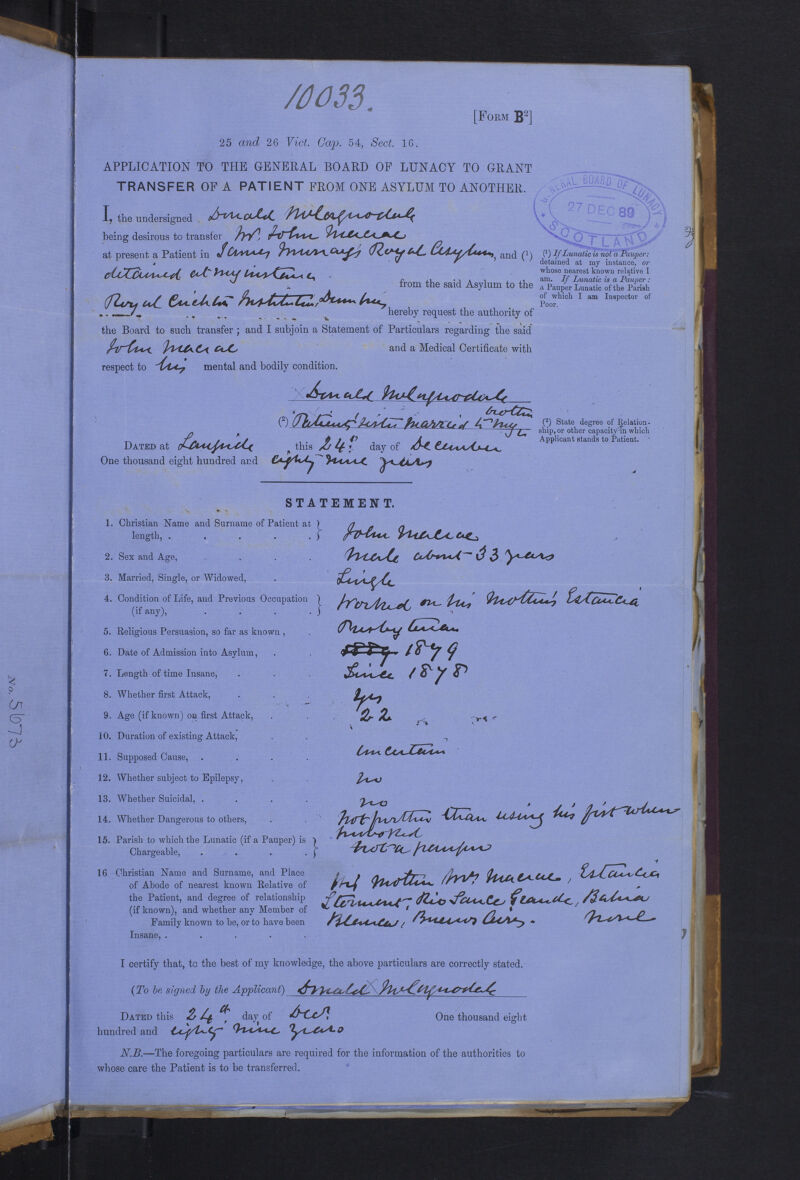 10033.
[FORM B²]
25 and 26 Vict. Cap. 54, Sect. 16.
APPLICATION TO THE GENERAL BOARD OF LUNACY TO GRANT
TRANSFER OF A PATIENT FROM ONE ASYLUM TO ANOTHER.
GENERAL BOARD OF LUNACY
27 DEC 89
SCOTLAND
I, the undersigned Donald
being desirous to transfer Mr. John Macrae
at present a Patient in James Murray's Royal Asylum, and (¹)
detained at my instance
from the said Asylum to the
Royal Crichton Institution, Dumfries
hereby request the authority of
the Board to such transfer; and I subjoin a Statement of Particulars regarding the said
John Macrae and a Medical Certificate with
respect to his mental and bodily condition.
(¹) If Lunatic is not a Pauper:
detained at my instance, or
whose nearest known relative I
am. If Lunatic is a Pauper:
a Pauper Lunatic of the Parish
of which I am Inspector of
Poor.
Donald
brother
(²) Patient's sister married to my
(²) State degree of Relation-
ship, or other capacity in which
Applicant stands to Patient.
DATED at this 24th day of December
One thousand eight hundred and eighty nine years
STATEMENT.
1. Christian Name and Surname of Patient at length, . John Macrae
2. Sex and Age, Male about 33 years
3. Married, Single, or Widowed, Single
4. Condition of Life, and Previous Occupation (if any), Worked on his Mother's Estancia
5. Religious Persuasion, so far as known, Presbyterian
6. Date of Admission into Asylum, 1889 1879
7. Length of time Insane, Since 1878
8. Whether first Attack, Yes
9. Age (if known) on first Attack, 22
10. Duration of existing Attack,
11. Supposed Cause, uncertain
12. Whether subject to Epilepsy, no
13. Whether Suicidal, no
14. Whether Dangerous to others, not further than using his fist when
provoked
15. Parish to which the Lunatic (if a Pauper) is Chargeable, not a pauper
16 Christian Name and Surname, and Place
of Abode of nearest known Relative of
the Patient, and degree of relationship
(if known), and whether any Member of
Family known to be, or to have been
Insane,
His mother Mrs Macrae, Estancia
Stormont, Rio Sauce Grande, Bahia
Blanca, Buenos Aires. None
I certify that, to the best of my knowledge, the above particulars are correctly stated.
(To be signed by the Applicant) Donald
DATED this 24th day of Decr One thousand eight
hundred and eighty nine years
N.B.—The foregoing particulars are required for the information of the authorities to
whose care the Patient is to be transferred.
No. 5673